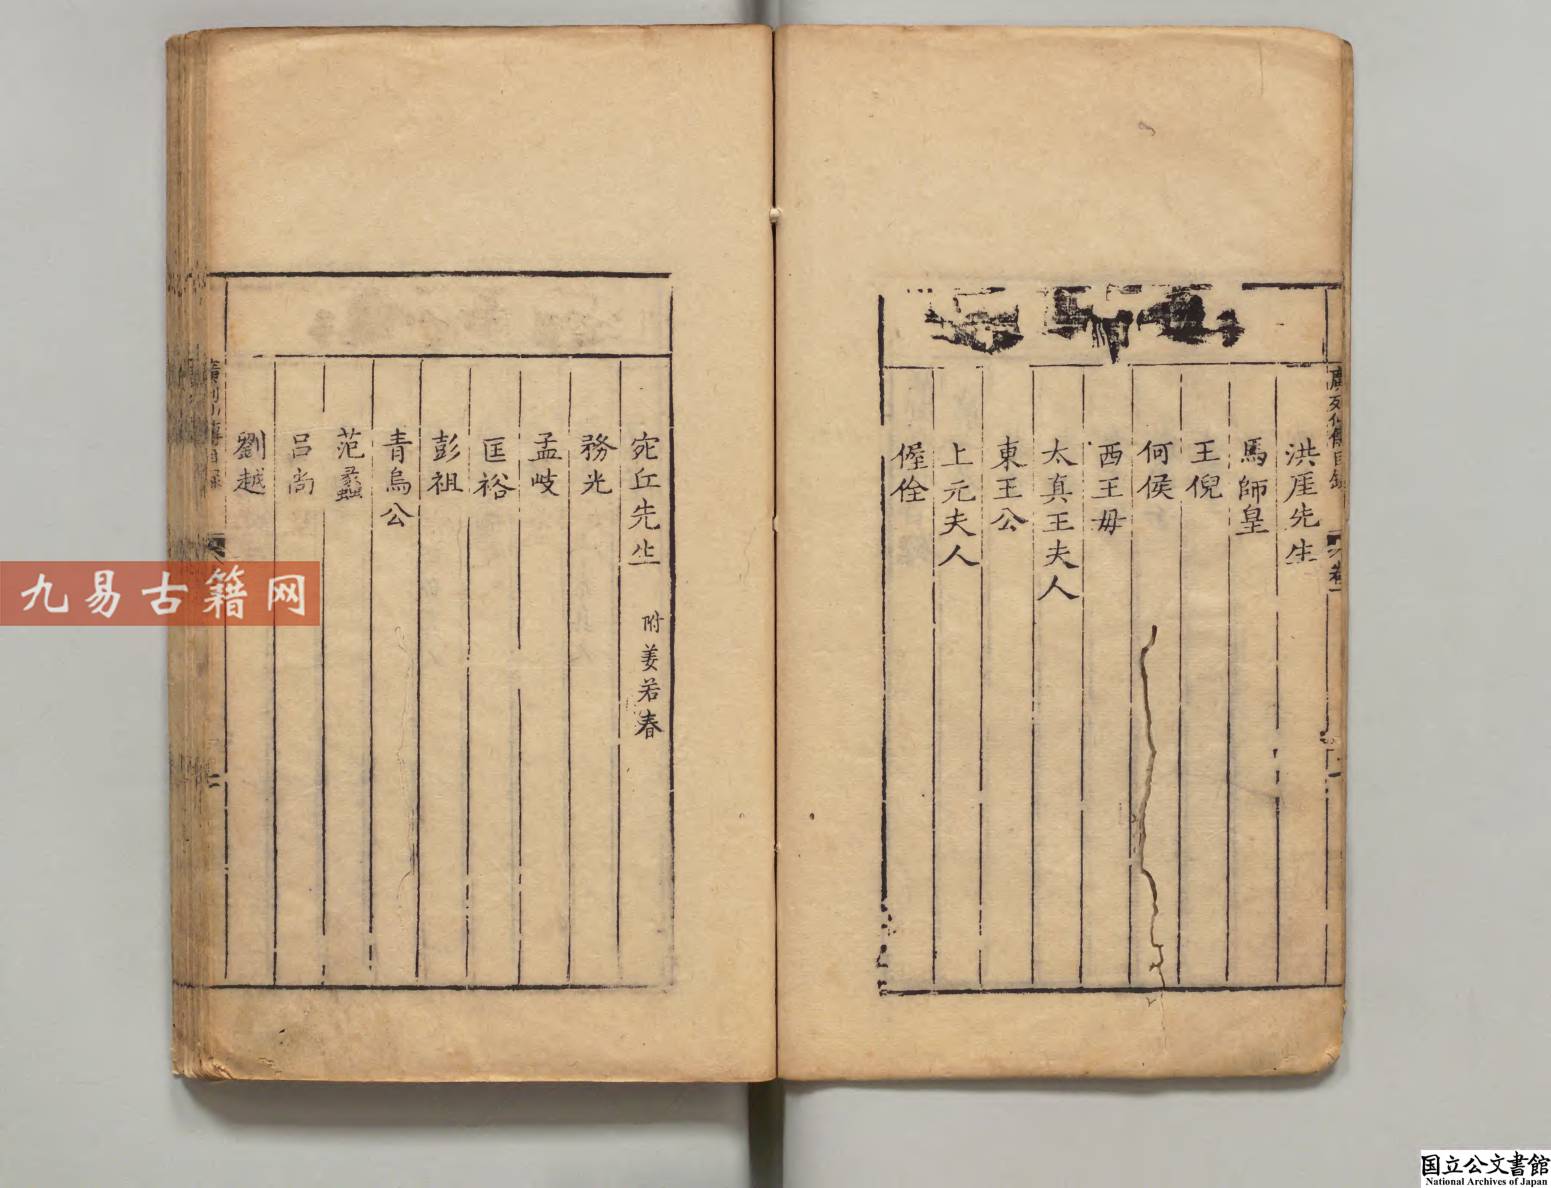 廣列仙傳目録
卷一
洪厓先生
馬師皇
王倪
何侯
西王毋
太真王夫人
東王公
上元夫人
偓佺
宛丘先生 附姜若春
務光
孟岐
匡裕
彭祖
青烏公
范蠡
吕尚
劉越
九易古籍网
国立公文書館
National Archives of Japan